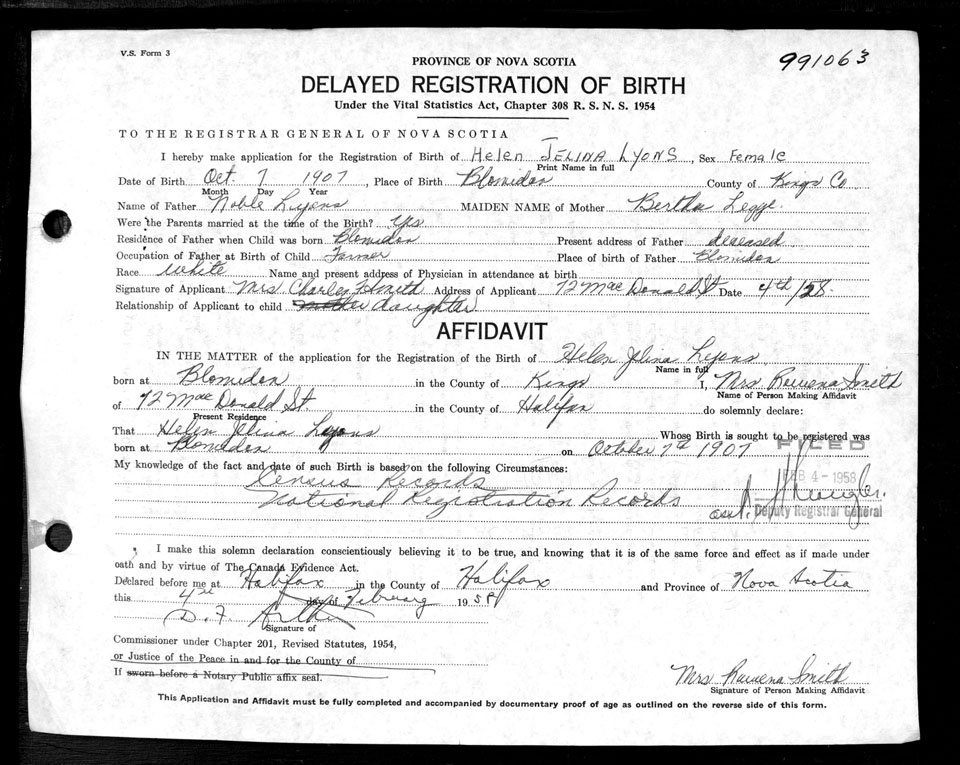 V.S. Form 3
991063
PROVINCE OF NOVA SCOTIA
DELAYED REGISTRATION OF BIRTH
Under the Vital Statistics Act, Chapter 308 R. S. N. S. 1954
TO THE REGISTRAR GENERAL OF NOVA SCOTIA
I hereby make application for the Registration of Birth of Helen JELINA LYONS, Sex Female
Print Name in full
Date of Birth Oct 7 1907, Place of Birth Blomidon County of Kings Co
Month Day Year
Name of Father Noble Lyons MAIDEN NAME of Mother Bertha Legge
Were the Parents married at the time of the Birth? Yes
Residence of Father when Child was born Blomidon Present address of Father deceased
Occupation of Father at Birth of Child Farmer Place of birth of Father Blomidon
Race White Name and present address of Physician in attendance at birth
Signature of Applicant Mrs Charles Smith Address of Applicant 72 MacDonald St Date 4th/2/58.
Relationship of Applicant to child daughter
AFFIDAVIT
IN THE MATTER of the application for the Registration of the Birth of Helen Jelina Lyons
Name in full
born at Blomidon in the County of Kings I, Mrs Rowena Smith
Name of Person Making Affidavit
of 72 MacDonald St in the County of Halifax do solemnly declare:
Present Residence
That Helen Jelina Lyons Whose Birth is sought to be registered was
born at Blomidon on October 7th 1907
FILED
My knowledge of the fact and date of such Birth is based on the following Circumstances:
Census Records
FEB 4 - 1958
National Registration Records
Asst. Deputy Registrar General
I make this solemn declaration conscientiously believing it to be true, and knowing that it is of the same force and effect as if made under
oath and by virtue of The Canada Evidence Act.
Declared before me at Halifax in the County of Halifax and Province of Nova Scotia
this 4th day of February 1958
D. F.
Signature of
Commissioner under Chapter 201, Revised Statutes, 1954,
or Justice of the Peace in and for the County of
If sworn before a Notary Public affix seal.
Mrs Rowena Smith
Signature of Person Making Affidavit
This Application and Affidavit must be fully completed and accompanied by documentary proof of age as outlined on the reverse side of this form.